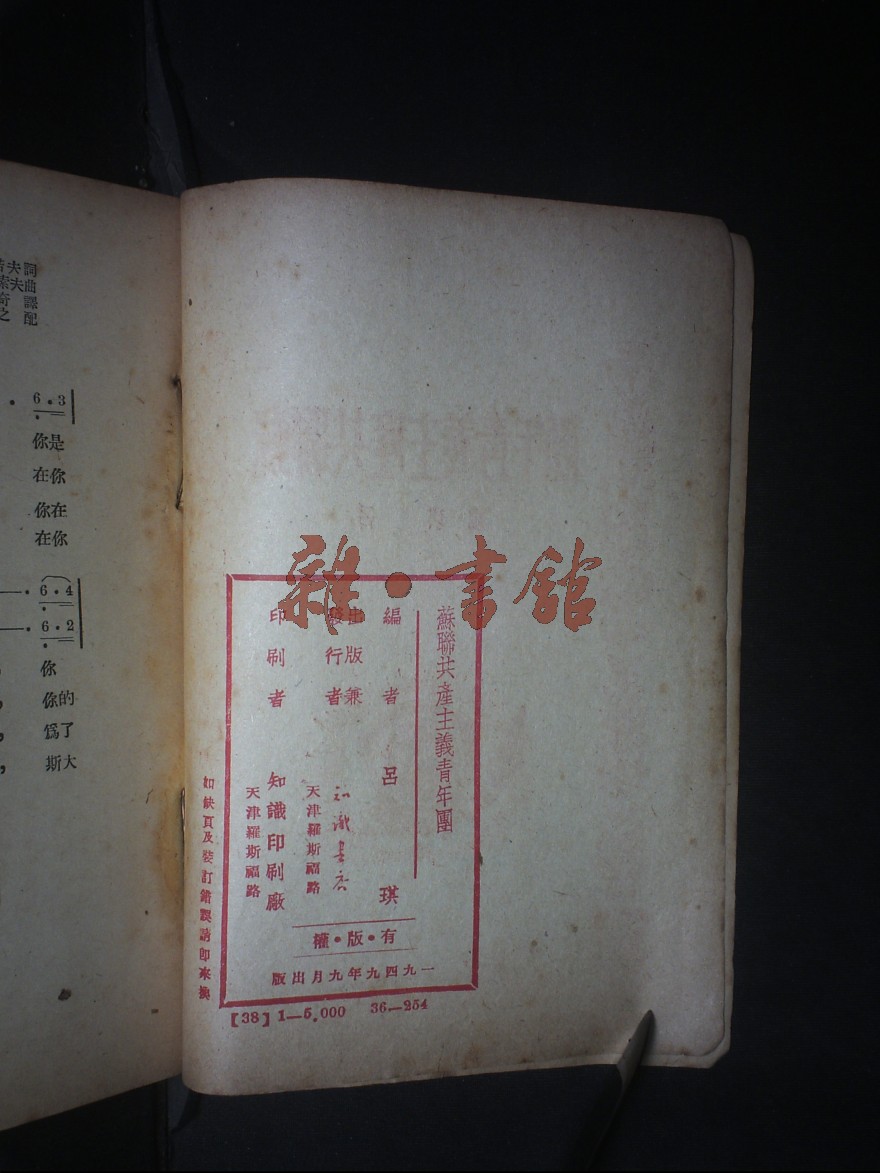 雜·書館
蘇聯共產主義青年團
編者 呂琪
出版兼
發行者
知識書店
天津羅斯福路
印刷者 知識印刷廠
天津羅斯福路
有·版·權
一九四九年九月出版
[38] 1—5,000 36—254
如缺頁及裝訂錯誤請即來換
夫詞
夫曲
奇譯
之配
6·3
你是
在你
你在
在你
6·4
6·2
你
你的
爲了
斯大